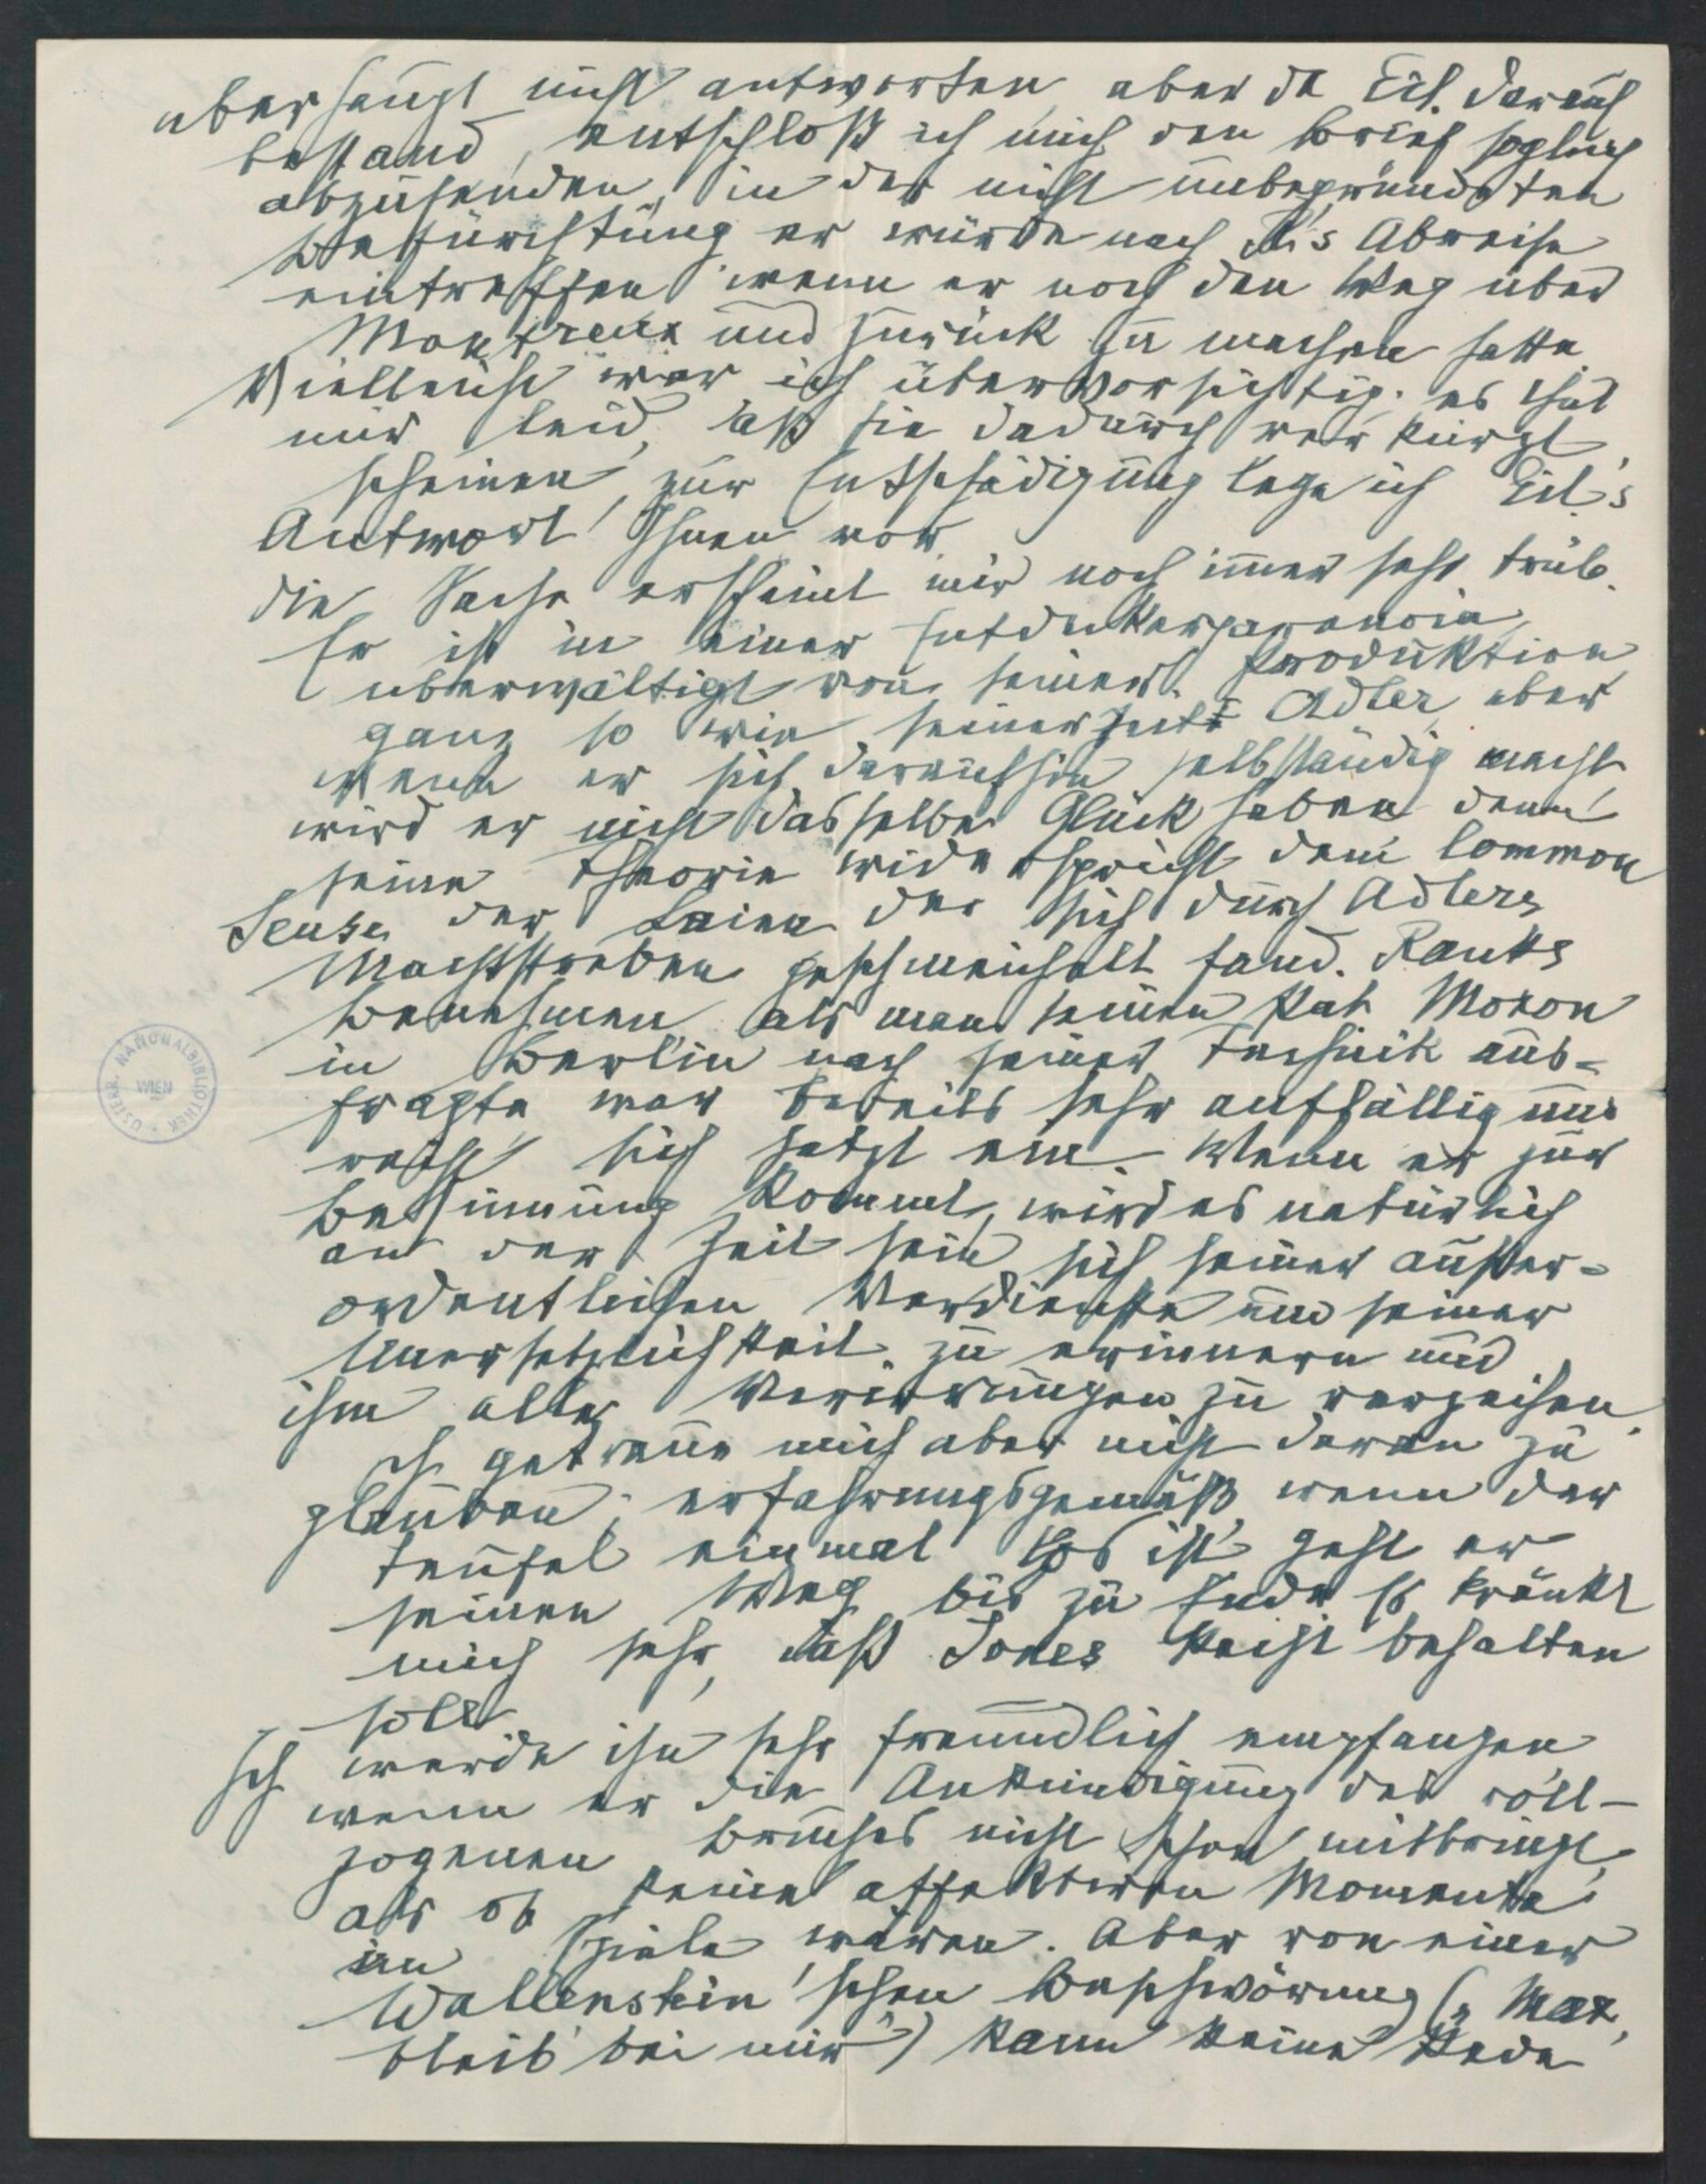 überhaupt nicht antworten, aber da Eit. darauf
bestand, entschloß ich mich den Brief sogleich
abzusenden, in der nicht unbegründeten
Befürchtung er würde nach R's Abreise
eintreffen wenn er noch den Weg über
Montreux und zurück zu machen hatte.
Vielleicht war ich übervorsichtig. es thut
mir leid, daß sie dadurch verkürzt
scheinen, zur Entschädigung lege ich Eit.s
Antwort Ihnen vor
die Sache erscheint mir noch immer sehr trüb.
Er ist in einer Entdeckerparanoia,
überwältigt von seiner Produktion
ganz so wie seinerzeit Adler, aber
wenn er sich daraufhin selbständig macht
wird er nicht dasselbe Glück haben denn
seine Theorie widerspricht dem Common
Sense der Laien der sich durch Adlers
Machtstreben geschmeichelt fand. Ranks
Benehmen als man seinen Pat. Moxon
in Berlin nach seiner Technik aus-
fragte war bereits sehr auffällig und
reiht sich jetzt ein. Wenn er zur
Besinnung kommt, wird es natürlich
an der Zeit sein sich seiner außer-
ordentlichen Verdienste und seiner
Unersetzlichkeit zu erinnern und
ihm alle Verirrungen zu verzeihen.
Ich getraue mich aber nicht daran zu
glauben; erfahrungsgemäß, wenn der
Teufel einmal los ist, geht er
seinen Weg bis zu Ende Es kränkt
mich sehr, daß Jones Recht behalten
soll.
Ich werde ihn sehr freundlich empfangen
wenn er die Ankündigung des voll-
zogenen Bruches nicht schon mitbringt,
als ob keine affektiven Momente
im Spiele wären. Aber von einer
Wallenstein'schen Beschwörung („Max,
bleib bei mir") kann keine Rede
ÖSTERR. NATIONALBIBLIOTHEK
WIEN